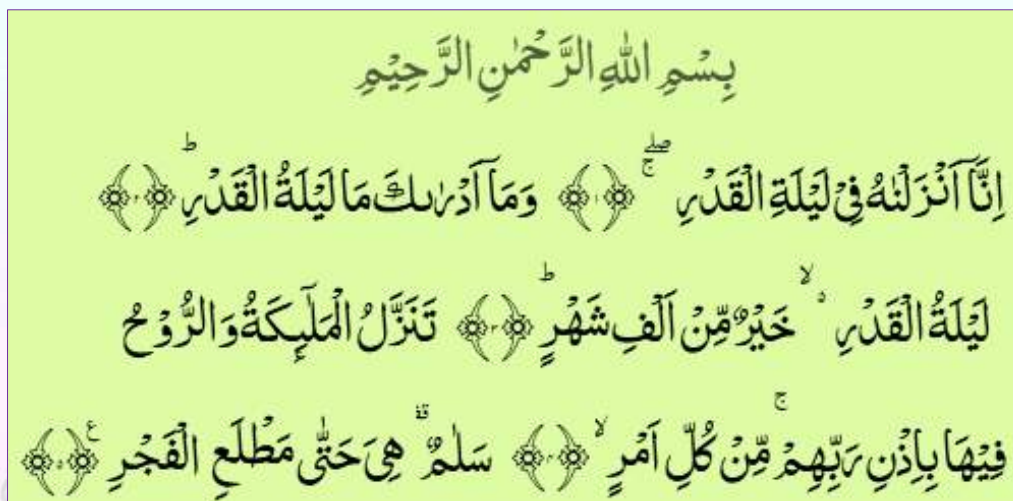 بِسْمِ اللّٰهِ الرَّحْمٰنِ الرَّحِيْمِ
اِنَّاۤ اَنْزَلْنٰهُ فِیْ لَیْلَةِ الْقَدْرِ ۖۚ ﴿۱﴾ وَمَاۤ اَدْرٰىكَ مَا لَیْلَةُ الْقَدْرِ ؕ ﴿۲﴾
لَیْلَةُ الْقَدْرِ ۙ۬ خَیْرٌ مِّنْ اَلْفِ شَهْرٍ ؕ ﴿۳﴾ تَنَزَّلُ الْمَلٰٓىِٕكَةُ وَ الرُّوْحُ
فِیْهَا بِاِذْنِ رَبِّهِمْ ۚ مِّنْ كُلِّ اَمْرٍ ۙ ﴿۴﴾ سَلٰمٌ ۛ۫ هِیَ حَتّٰى مَطْلَعِ الْفَجْرِ ﴿۵﴾ ع